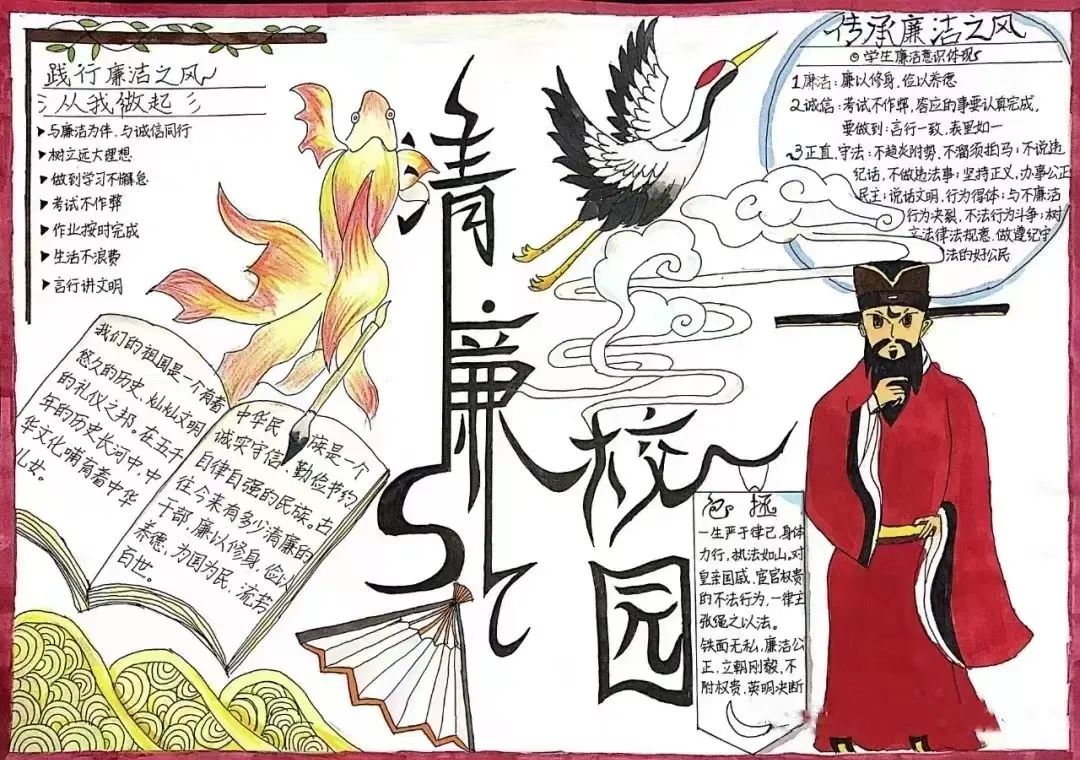 践行廉洁之风
从我做起
与廉洁为伴,与诚信同行
树立远大理想
做到学习不懈怠
考试不作弊
作业按时完成
生活不浪费
言行讲文明
清廉
校园
传承廉洁之风
学生廉洁意识体现
1廉洁:廉以修身,俭以养德
2诚信:考试不作弊,答应的事要认真完成,
要做到:言行一致,表里如一
3正直,守法:不趋炎附势,不溜须拍马;不说违
纪话,不做违法事;坚持正义,办事公正
民主;说话文明,行为得体;与不廉洁
行为决裂,不法行为斗争;树
立法律法规意,做遵纪守
法的好公民
我们的祖国是一个有着
悠久的历史,灿灿文明
的礼仪之邦。在五千
年的历史长河中,中
华文化哺育着中华
儿女。
中华民族是一个
诚实守信、勤俭节约
自律自强的民族。古
往今来有多少清廉的
干部,廉以修身,俭以
养德,为国为民,流芳
百世。
包拯
一生严于律己,身体
力行,执法如山。对
皇亲国戚,宦官权贵
的不法行为,一律主
张绳之以法。
铁面无私,廉洁公
正,立朝刚毅,不
附权贵,英明决断